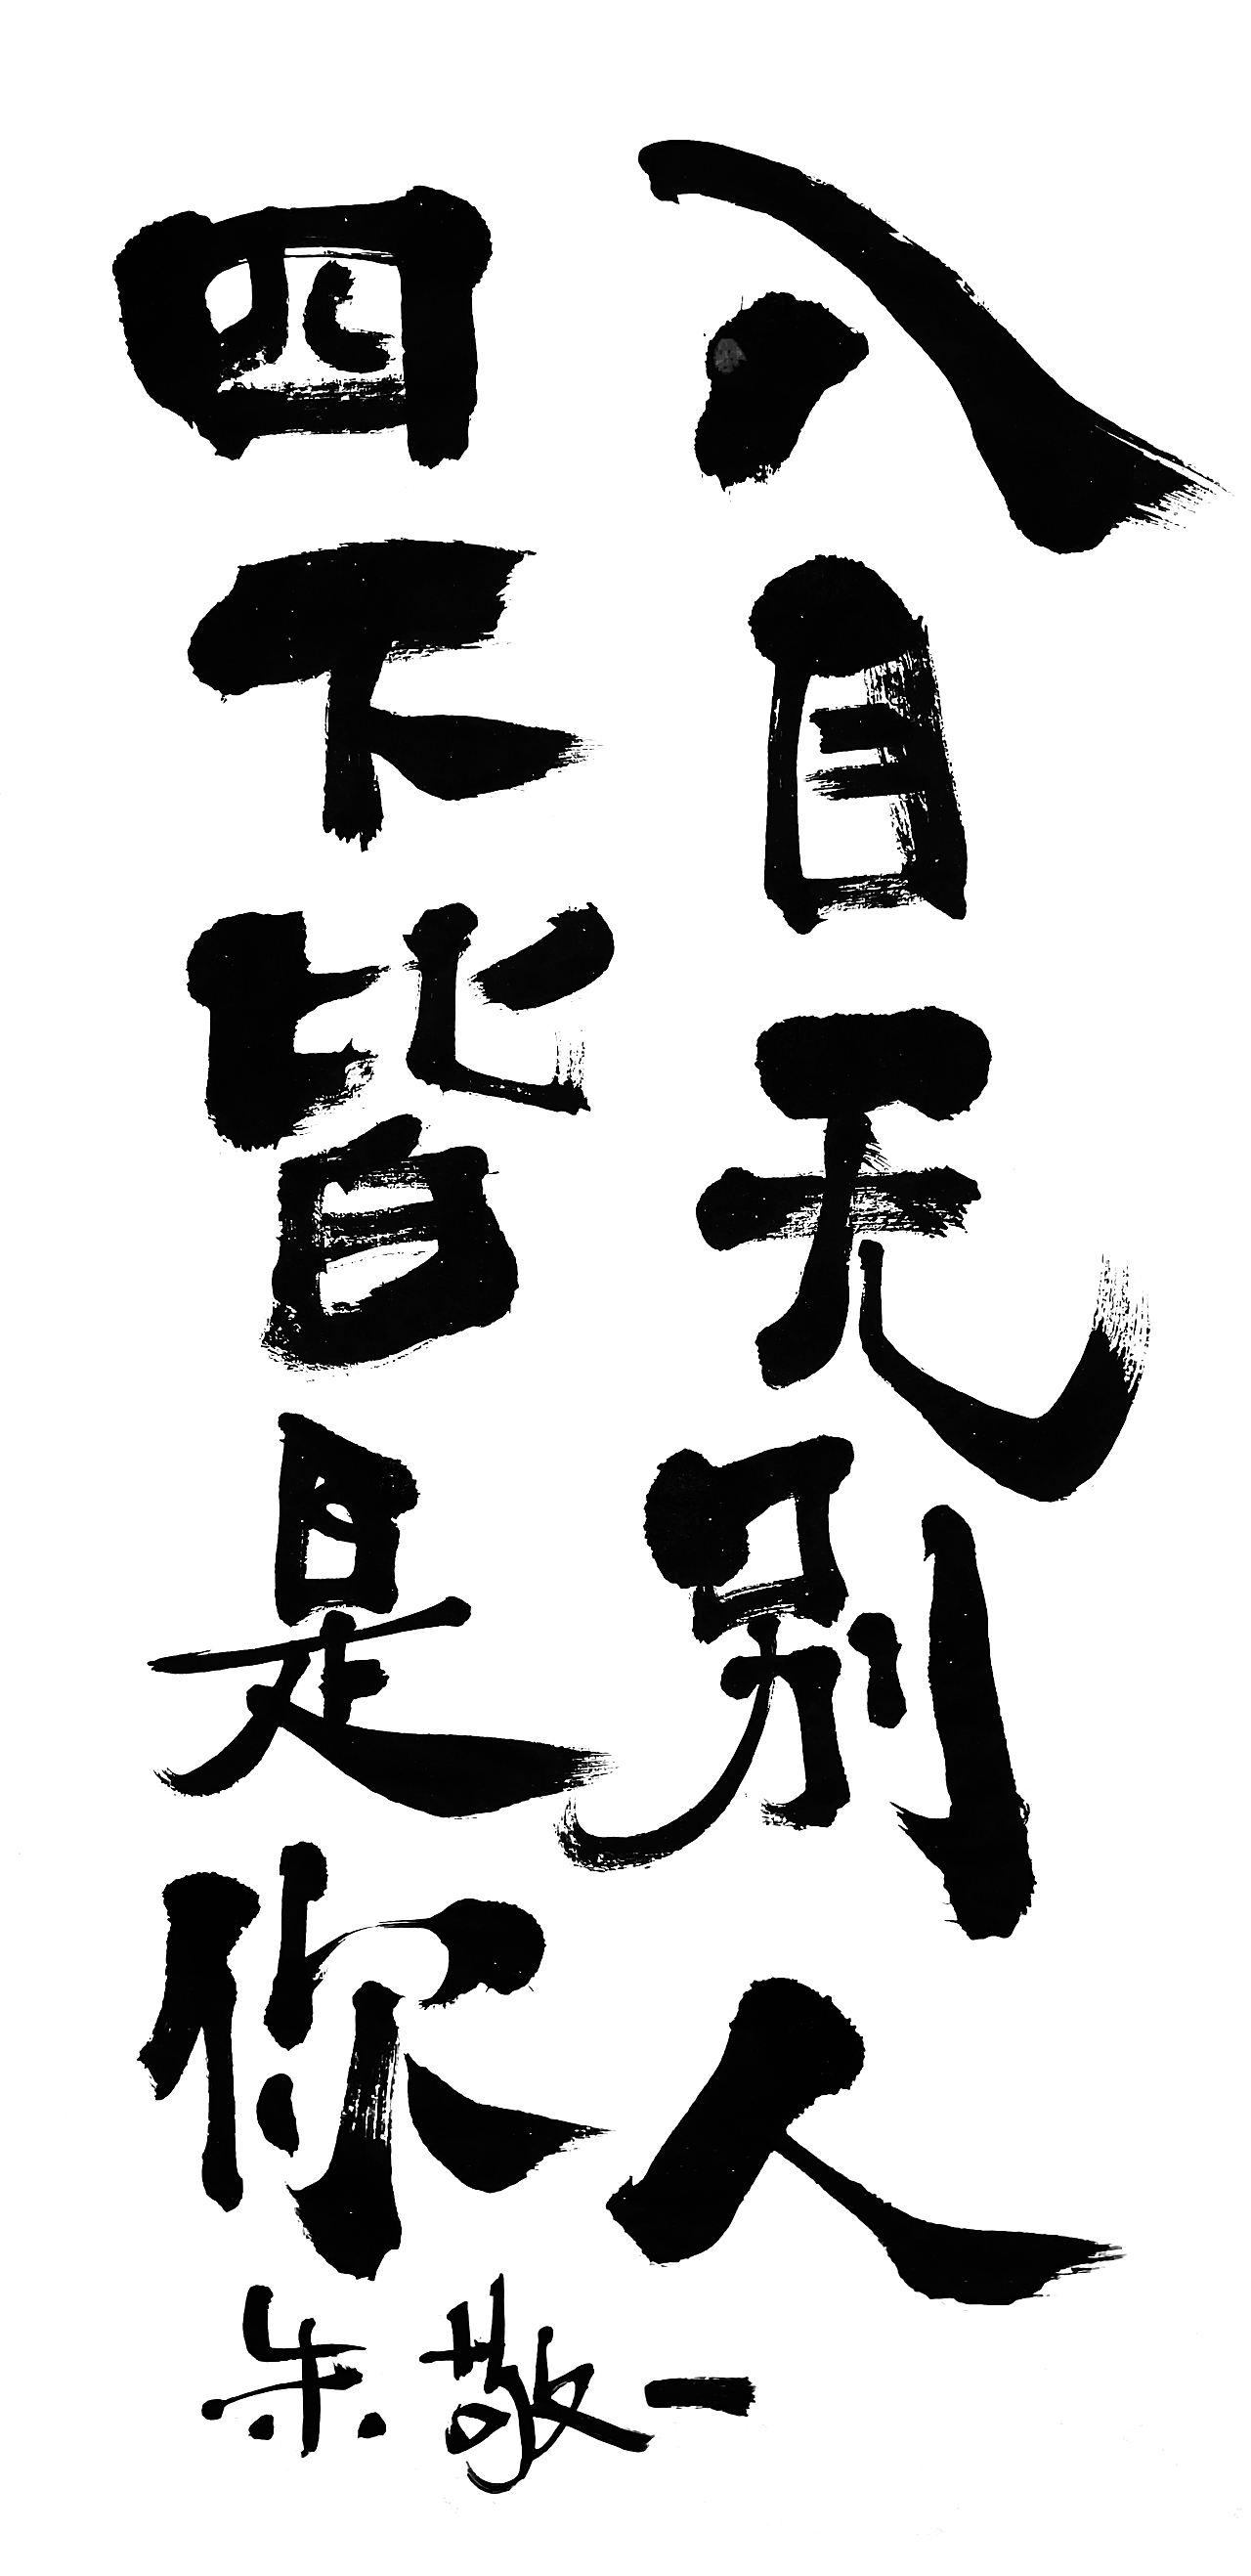 入目无别人
四下皆是你
朱敬一